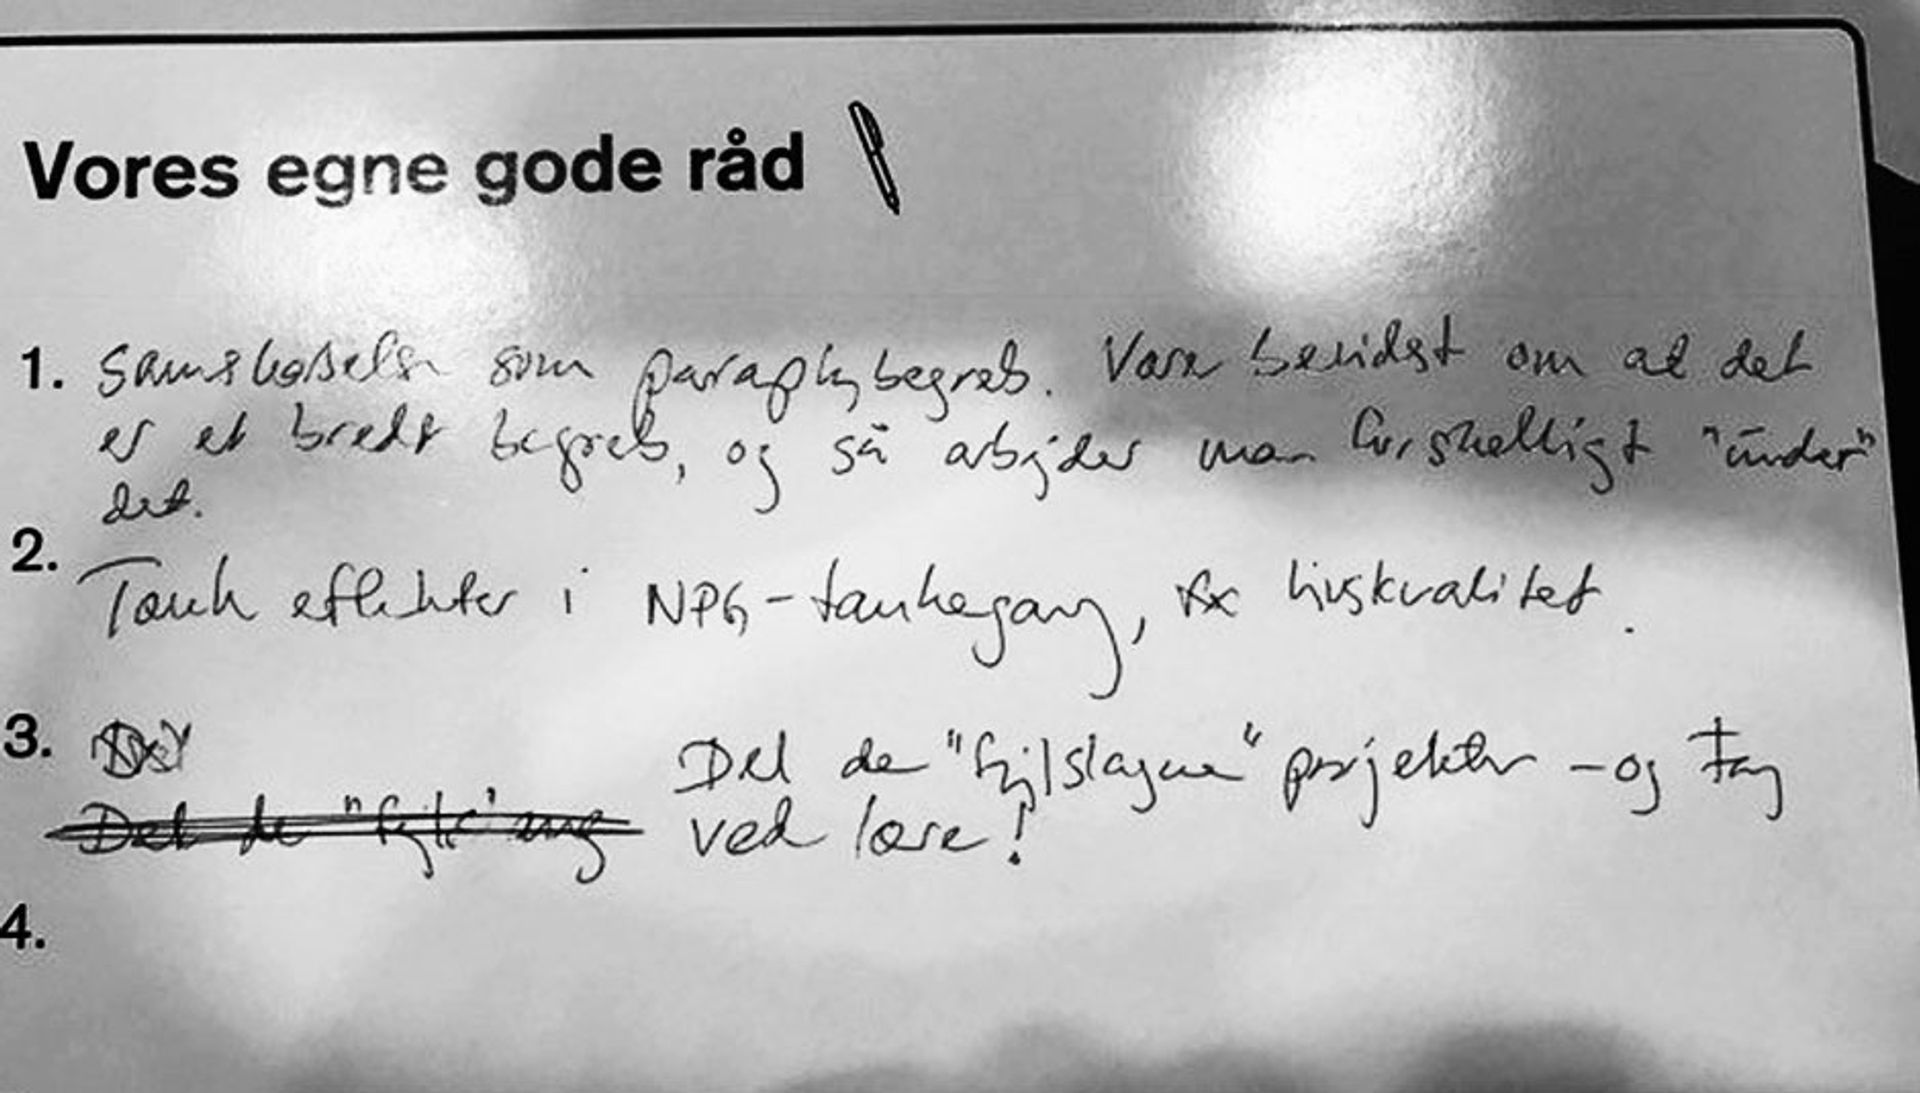 Vores egne gode råd
1. Samskabelse som paraplybegreb. Vær bevidst om at det
er et bredt begreb, og så arbejder man forskelligt "under"
det.
2.
Tænk effekter i NPG-tankegang, fx livskvalitet.
3. Del de "fejlslagne" projekter - og tag
Del de ved lære!
4.